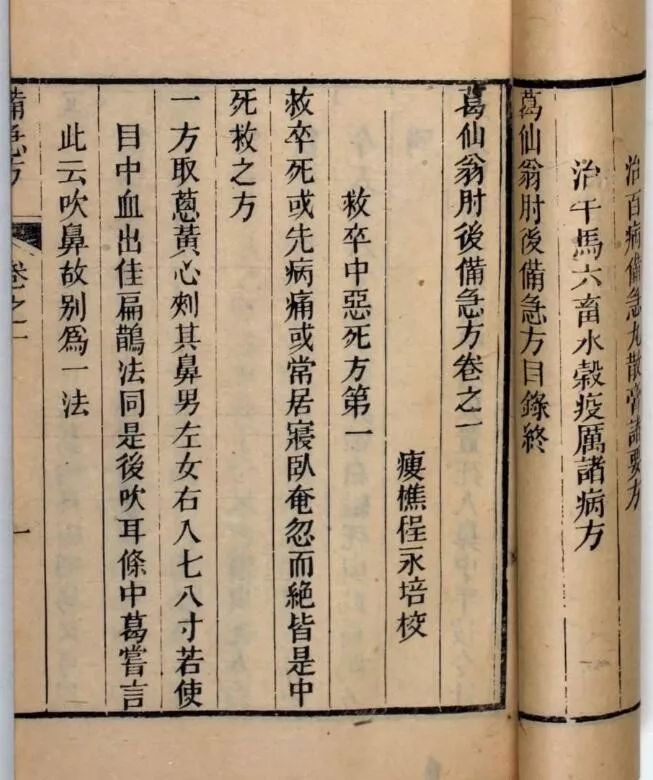 治百病備急丸散膏諸要方
治牛馬六畜水穀疫厲諸病方
葛仙翁肘後備急方目錄終
葛仙翁肘後備急方卷之一
瘦樵程永培校
救卒中惡死方第一
救卒死或先病痛或常居寢臥奄忽而絕皆是中
死救之方
一方取蔥黃心刾其鼻男左女右入七八寸若使
目中血出佳扁鵲法同是後吹耳條中葛嘗言
此云吹鼻故别爲一法
備急方
卷之一
一